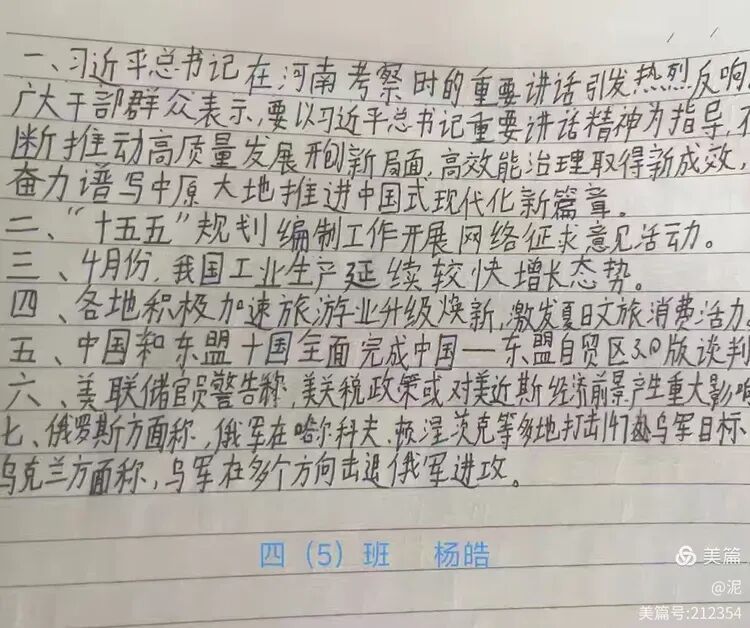 一、习近平总书记在河南考察时的重要讲话引发热烈反响。
广大干部群众表示,要以习近平总书记重要讲话精神为指导,不
断推动高质量发展开创新局面,高效能治理取得新成效,
奋力谱写中原大地推进中国式现代化新篇章。
二、“十五五”规划编制工作开展网络征求意见活动。
三、4月份,我国工业生产延续较快增长态势。
四、各地积极加速旅游业升级焕新,激发夏日文旅消费活力。
五、中国和东盟十国全面完成中国—东盟自贸区3.0版谈判
六、美联储官员警告称,美关税政策或对美近斯经济前景产生重大影响
七、俄罗斯方面称,俄军在哈尔科夫、顿涅茨克等多地打击147处乌军目标、
乌克兰方面称,乌军在多个方向击退俄军进攻。
四(5)班 杨皓
美篇
@泥
美篇号:212354